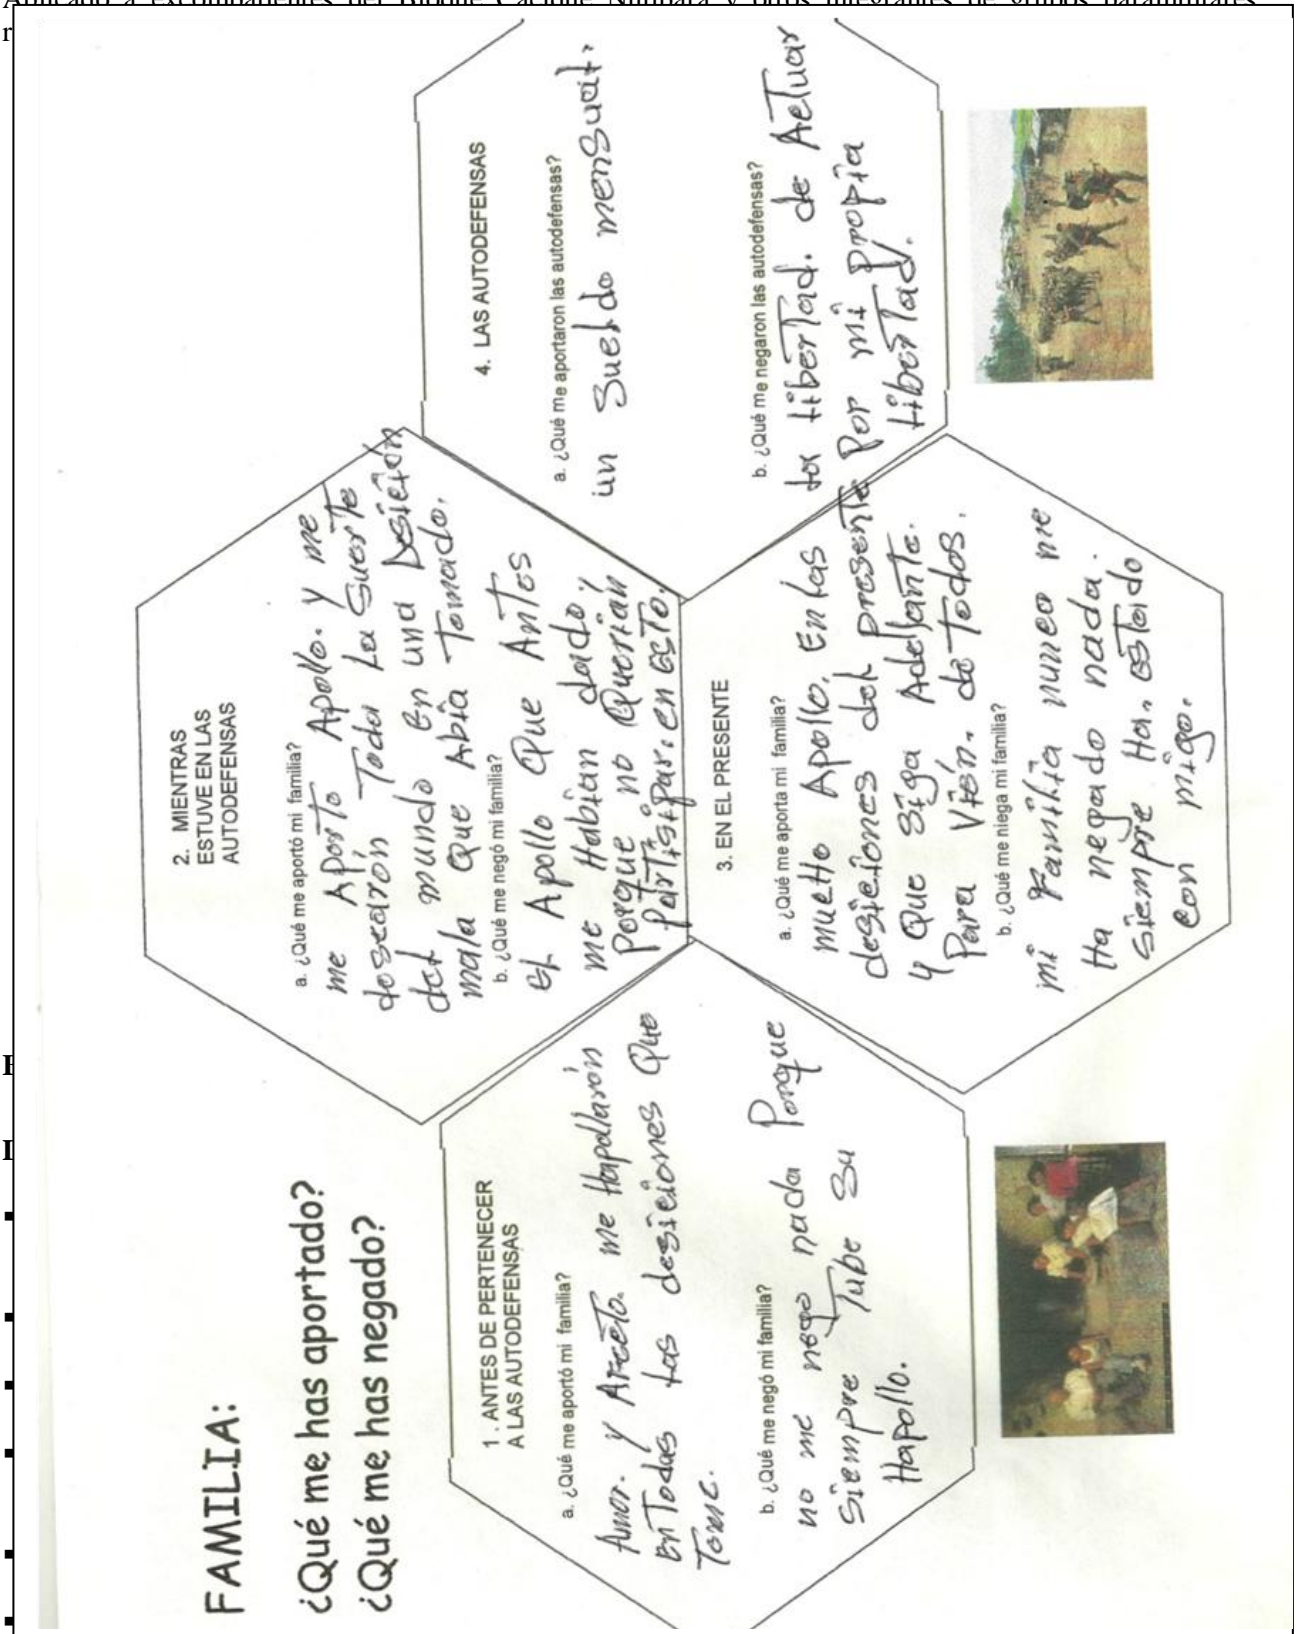 FAMILIA:
¿Qué me has aportado?
¿Qué me has negado?
1. ANTES DE PERTENECER
A LAS AUTODEFENSAS
a. ¿Qué me aportó mi familia?
Amor. y Afecto. me Hapollarón
En Todas las desiciones Que
Tome.
b. ¿Qué me negó mi familia?
no me nego nada Porque
Siempre Tube Su
Hapollo.
2. MIENTRAS
ESTUVE EN LAS
AUTODEFENSAS
a. ¿Qué me aportó mi familia?
me Aporto Apollo. y me
desearón Toda La Suerte
del mundo en una Desición
mala Que Abia Tomado.
b. ¿Qué me negó mi familia?
El Apollo Que Antes
me Habian dado y
Porque no Querian
Partisipar. en esto.
3. EN EL PRESENTE
a. ¿Qué me aporta mi familia?
mucho Apollo. En las
desiciones del presente
y Que Siga Adellante.
Para Vién. de Todos.
b. ¿Qué me niega mi familia?
mi Familia nunca me
Ha negado nada.
Siempre Ha. estado
con migo.
4. LAS AUTODEFENSAS
a. ¿Qué me aportaron las autodefensas?
un Sueldo mensual.
b. ¿Qué me negaron las autodefensas?
la libertad. de Actuar
Por mi propia
libertad.